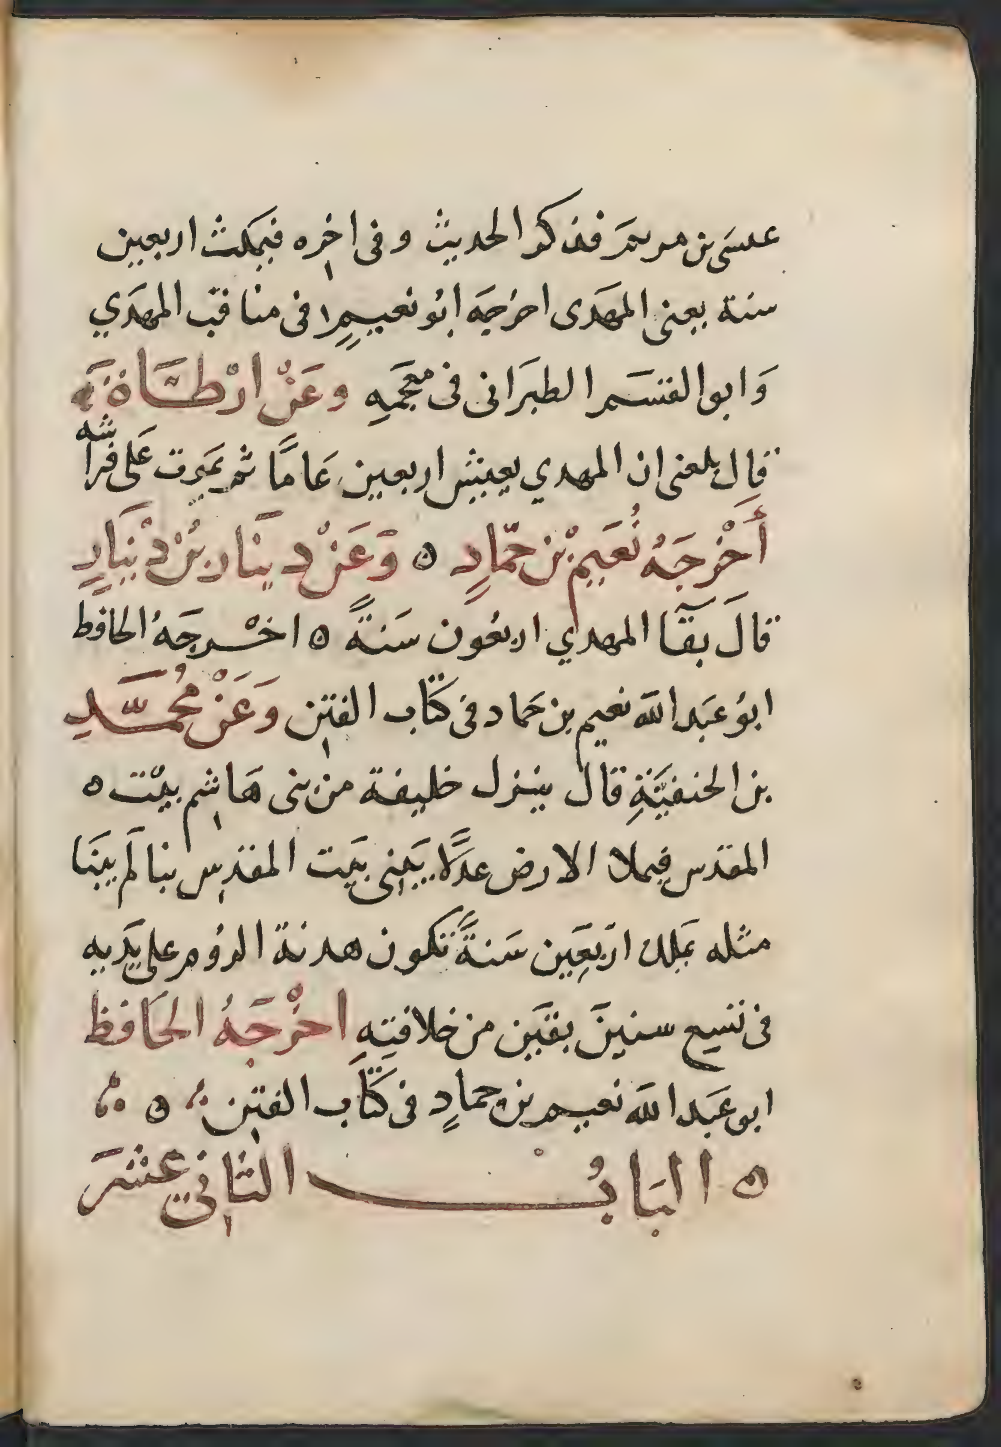 عيسَى بن مريمَ فذكر الحديث وفى اخِره فيمكث اربعين
سنة يعنى المهَدى اخرَجه ابُو نعيمٍ فى مناقب المهدَي
وَابو القسَم الطبرَانى فى معجَمِهِ وعَنْ ارْطَاة
قال بلغنى ان المهدي يعيش اربعين عَامًا ثم يمَوت عَلى فراشه
أَخْرَجَهُ نُعَيم بْن حمّادٍ ه وَعَنْ دينَار بُن دْيَنارٍ
قالَ بقَآ المهدي اربعُون سَنةً ه اخْرجَهُ الحافظ
ابوُ عبَد اللَه نعيم بن حَماد فى كتاب الفتِن وَعَنْ مُحمَّدِ
بن الحنفيَّةِ قال ينزل خليفة من بنى هَاشم بيْت ه
المقدس فيملا الارض عدلًا يَبنِى بيَت المقدِس بنا لَم يبنَا
مثله يملك ارَبعِين سَنةً تكون هدنة الروُم على يَدَيه
فى تسع سنينَ بقيَن من خلافتِهِ اخْرَجَهُ الحَافظ
ابو عبَد اللَه نعيم بن حمادٍ فى كتَاب الفتِن ه
ه البَابُ الثانِي عشَرَ